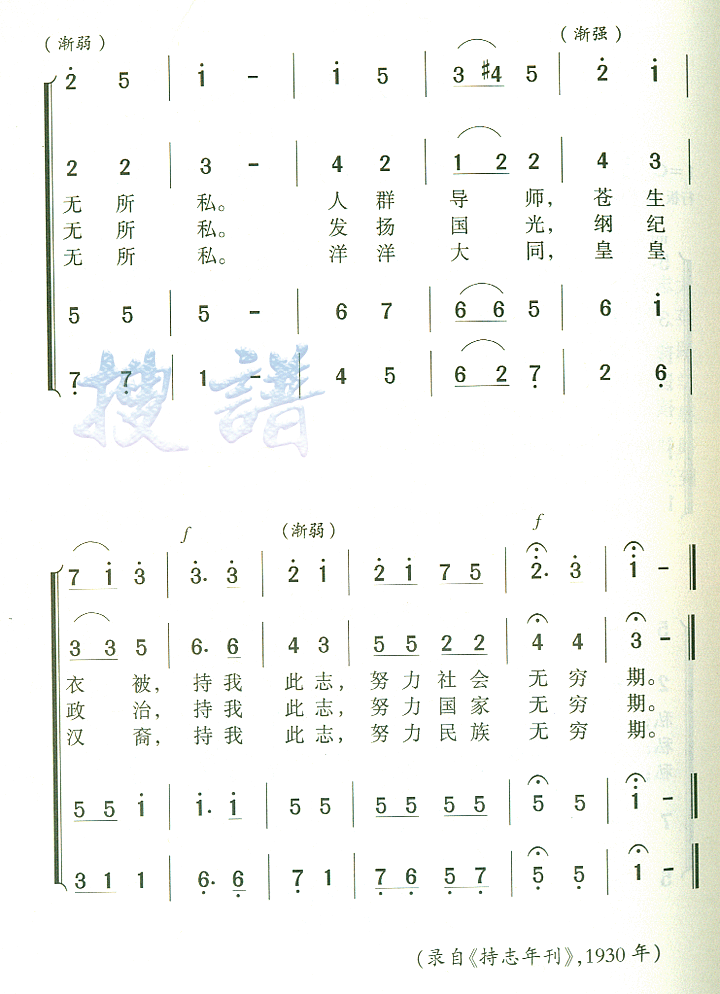 (渐弱) (渐强)
2 5 | 1 - | 1 5 | 3 #4 5 | 2 1 |
2 2 | 3 - | 4 2 | 1 2 2 | 4 3
无所私。人群导师,苍生
无所私。发扬国光,纲纪
无所私。洋洋大同,皇皇
5 5 | 5 - | 6 7 | 6 6 5 | 6 1
7 7 | 1 - | 4 5 | 6 2 7 | 2 6
搜谱
f (渐弱) f
7 1 3 | 3. 3 | 2 1 | 2 1 7 5 | 2. 3 | 1 -
3 3 5 | 6. 6 | 4 3 | 5 5 2 2 | 4 4 | 3 -
衣被,持我此志,努力社会无穷期。
政治,持我此志,努力国家无穷期。
汉裔,持我此志,努力民族无穷期。
5 5 1 | 1. 1 | 5 5 | 5 5 5 5 | 5 5 | 1 -
3 1 1 | 6. 6 | 7 1 | 7 6 5 7 | 5 5 | 1 -
(录自《持志年刊》,1930年)